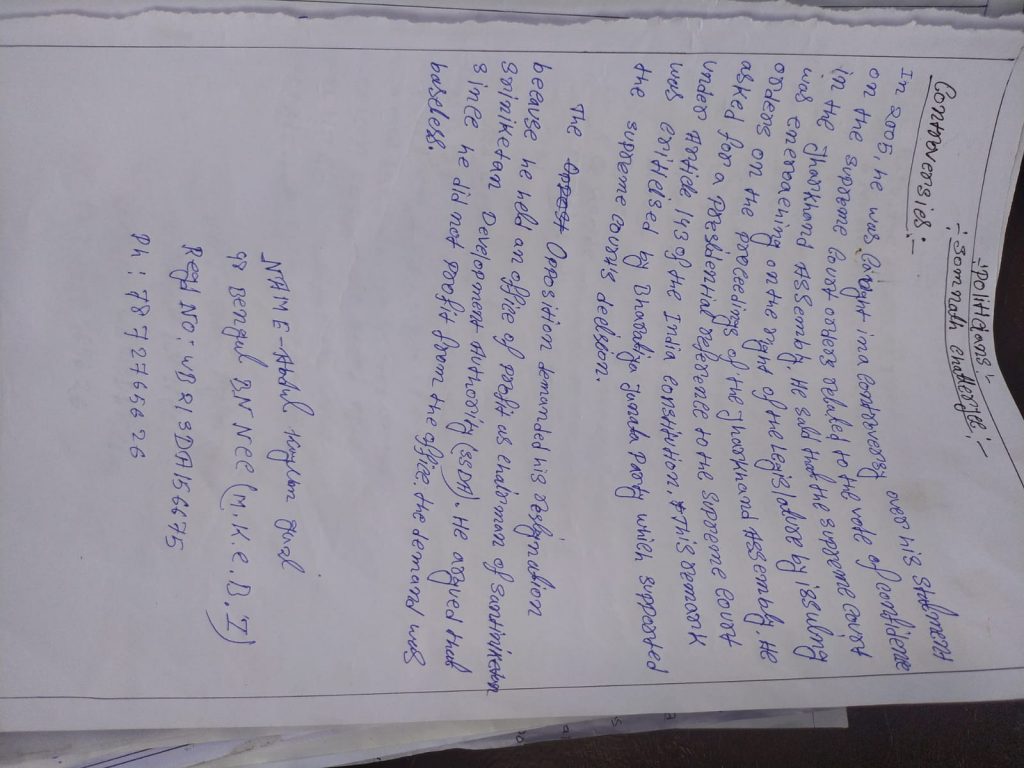 -: Politicians :-
-: Somnath Chatterjee :-
Controversies :-
In 2005, he was caught in a controversy over his statement
on the supreme court orders related to the vote of confidence
in the Jharkhand Assembly. He said that the supreme court
was encroaching on the right of the legislature by issuing
orders on the proceedings of the Jharkhand Assembly. He
asked for a presidential reference to the supreme court
under Article 113 of the India constitution. This remark
was criticised by Bharatiya Janata Party which supported
the supreme court's decision.
The Opposition demanded his resignation
because he held an office of profit as chairman of Santiniketan
Sriniketan Development Authority (SSDA). He argued that
since he did not profit from the office, the demand was
baseless.
NAME - Abdul
Bengal BN NCC (M.K.C.B.I)
Regt No: WB21SDA156675
Ph: 7872765626